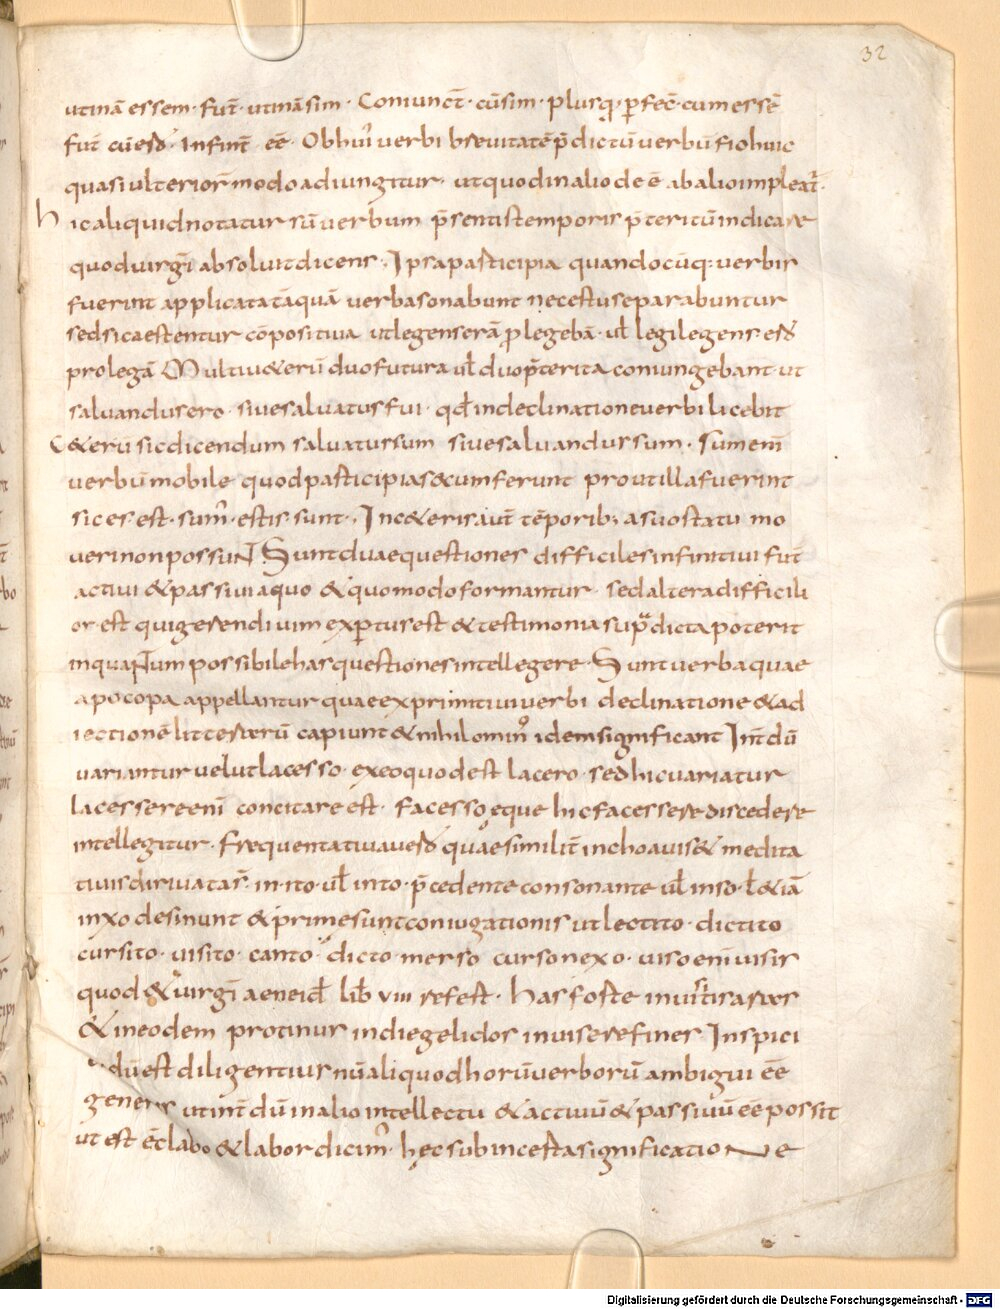 32
utinā essem · fut̄ · utinā sim · Coniunct̄ · cū sim · plusq; ꝑfec̄ · cum essē
fut̄ cū ero · Infinit̄ eē · Ob huī uerbi breuitatē p̄dictū uerbū fio huic
quasi ulterior modo adiungitur · ut quod in alio deē ab alio impleat̄ ·
hic aliquid notatur sū uerbum p̄sentis temporis p̄teritū indicare
quod uirgī absoluit dicens · Ipsa participia quandocūq; uerbis
fuerint applicata tāquā uerba sonabunt nec estu separabuntur
sed sic aestentur cōpositiua ut legens erā p̄ legebā · ut̄ legi legens ero
pro legā Multi u&erū duo futura ut̄ duo p̄terita coniungebant · ut
saluandus ero · siue saluatus fui · qđ in declinatione uerbi licebit
C&erū sic dicendum saluatus sum siue saluandus sum · Sum enī
uerbū mobile quod participia secum ferunt prout illa fuerint
sic es est · sum̄ · estis sunt · In c&eris aut̄ tēporib; a suo statu mo
ueri non possuNT Sunt duae questiones difficiles infinitiui fut̄
actiui & passiui a quo & quomodo formantur · sed altera difficili
or est qui gerendi uim expertus est & testimonia sup̄dicta poterit
inquaNTum possibile has questiones intellegere · Sunt uerba quae
apocopa appellantur quae ex primitiui uerbi declinatione & ad
iectionē litterarū capiunt & nihilomin̄ idem significant Int̄dū
uariantur uelut lacesso · ex eo quod est lacero · sed hic uariatur
lacessere enī concitare est · facesso eque hic facessere discedere
intellegitur · Frequentatiua uero quae similit̄ inchoatiuis & medita
tiuis diriuatas̄ · in · ito · ut̄ in to · p̄cedente consonante ut̄ in so · t̄ & iā
in xo desinunt & prime sunt coniugationis ut lectito · dictito
cursito · uisito · canto · dicto · merso curso nexo · uiso enī uisis
quod & uirgī aeneid̄ lib̄ viii refest · has foste inuisit aras
& in eodem protinus indiegelidos inuisere fines · Inspici
dū est diligentius nū aliquod horū uerborū ambigui eē
generis ut int̄dū in alio intellectu & actiuū & passiuū eē possit
ut est ēc labo & labor dicim̄ · hęc sub incesta significatioNe
Digitalisierung gefördert durch die Deutsche Forschungsgemeinschaft - DFG